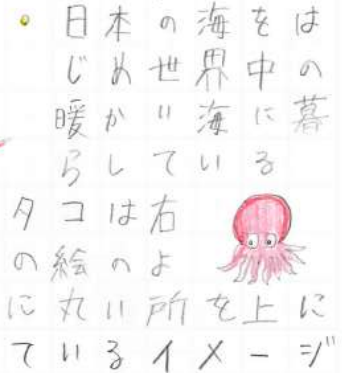 ・日本の海をは
じめ世界中の
暖かい海に暮
らしている
タコは右
の絵のよ
に丸い所を上に
ているイメージ